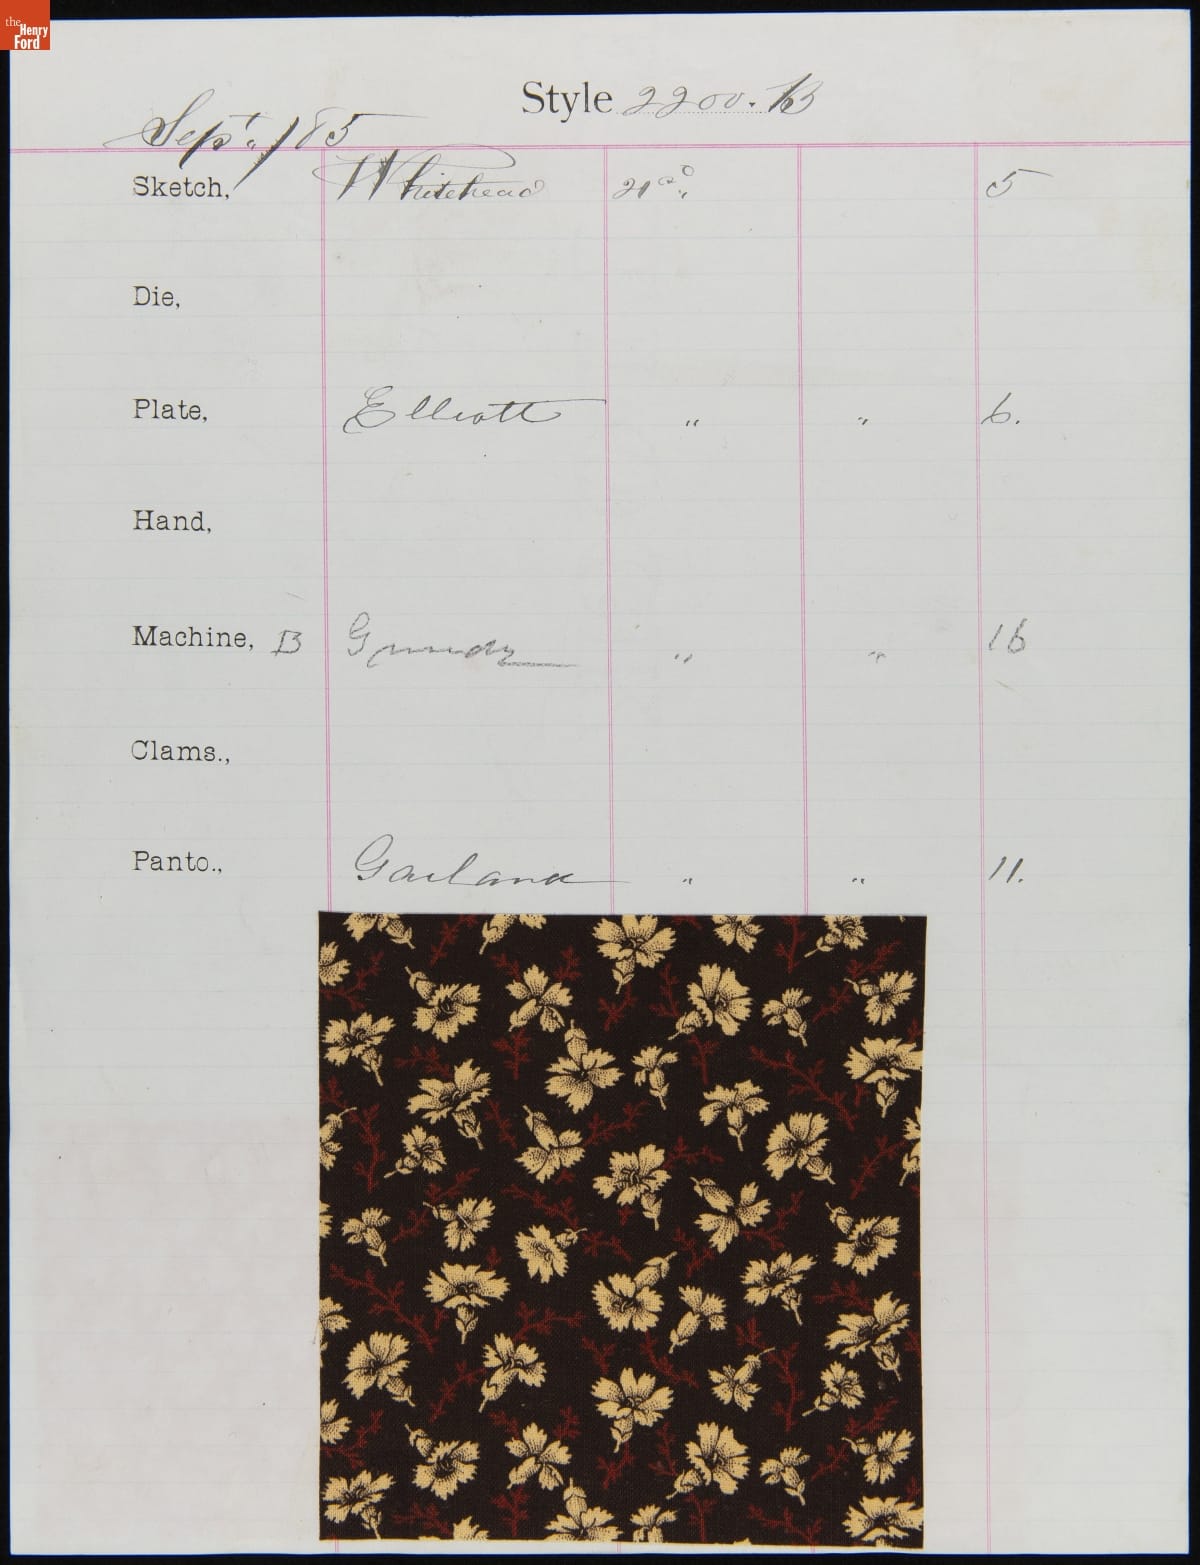 the
Henry
Ford
Style 2200. B
Sept. /85
Sketch, Whitehead 5
Die,
Plate, Elliott " " 6.
Hand,
Machine, B Grundy " " 16
Clams.,
Panto., Garland " " 11.